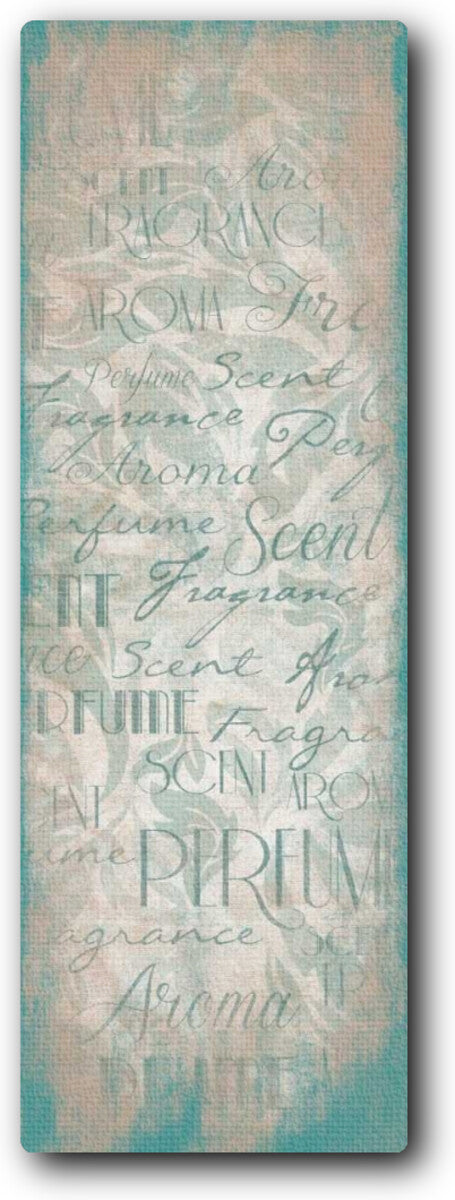 SCENT Aro
FRAGRANCE
AROMA Fra
Perfume Scent
Fragrance Perf
Aroma
Perfume Scent
ENT Fragrance
nce Scent Arom
RFUME Fragra
SCENT AROM
ENT
ume PERFUME
agrance SCE
Aroma